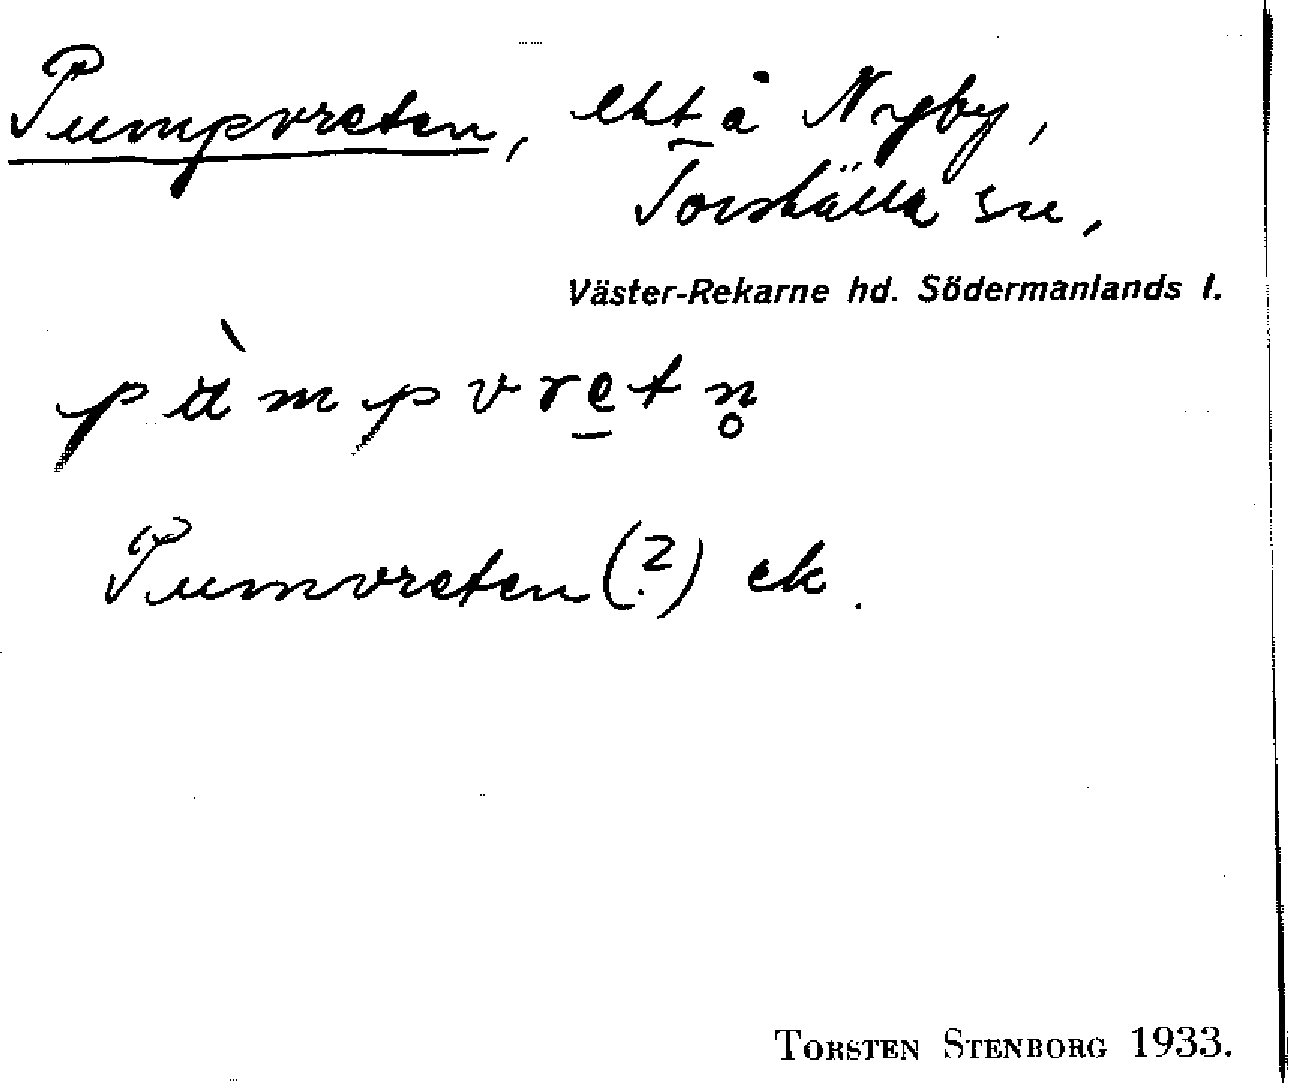 Pumpvreten, lht å Nyby,
Torshälla sn,
Väster-Rekarne hd. Södermanlands l.
pùmpvretn̥
Pumvreten(?) ek.
TORSTEN STENBORG 1933.